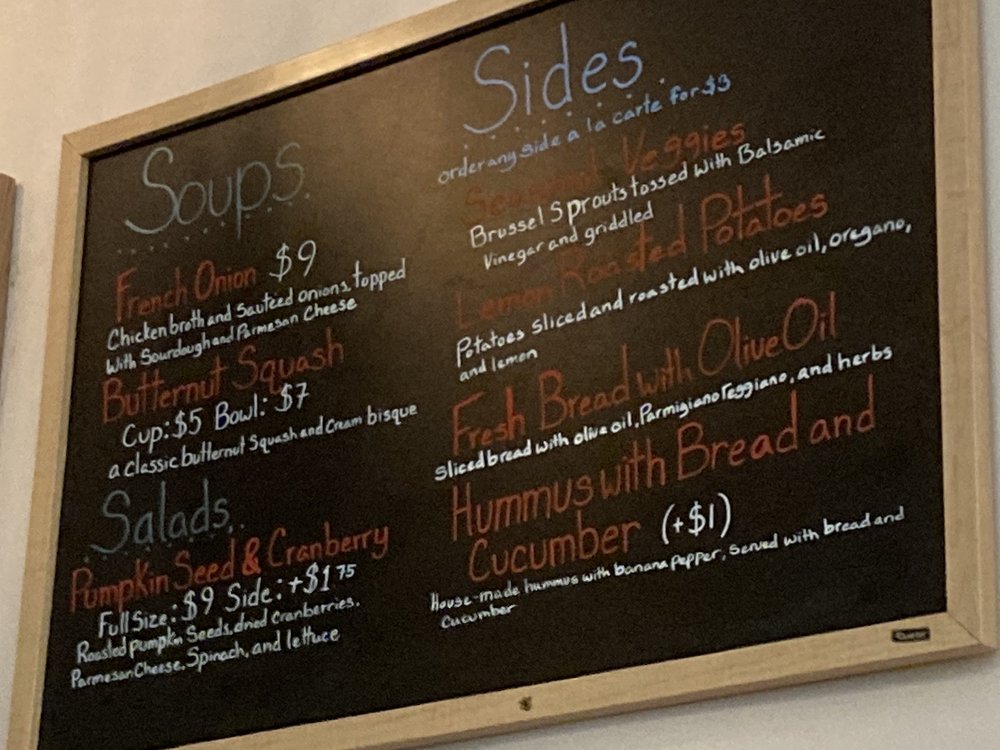 Soups
French Onion $9
Chicken broth and Sauteed onions topped
With Sourdough and Parmesan Cheese
Butternut Squash
Cup: $5 Bowl: $7
a classic butternut Squash and Cream bisque
Salads
Pumpkin Seed & Cranberry
Full Size: $9 Side: +$1 75
Roasted Pumpkin Seeds, dried Cranberries,
Parmesan Cheese, Spinach, and lettuce
Sides
order any side a la carte for $3
Seasonal Veggies
Brussel Sprouts tossed with Balsamic
Vinegar and griddled
Lemon Roasted Potatoes
Potatoes Sliced and roasted with olive oil, oregano,
and lemon
Fresh Bread with Olive Oil
Sliced bread with olive oil, Parmigiano reggiano, and herbs
Hummus with Bread and
Cucumber (+$1)
House-made hummus with banana Pepper, Served with bread and
Cucumber
Quartet